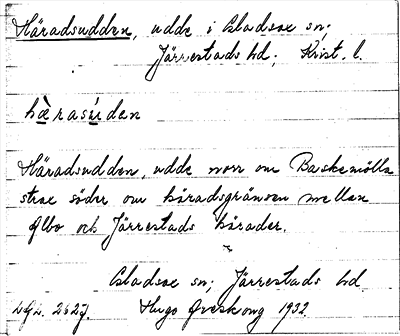 Häradsudden, udde i Gladsax sn;
Järrestads hd; Krist. l.
hæraśúden
Häradsudden, udde norr om Baskemölla
strax söder om häradsgränsen mellan
Albo och Järrestads härader.
Gladsax sn; Järrestads hd
Hugo Areskoug 1932